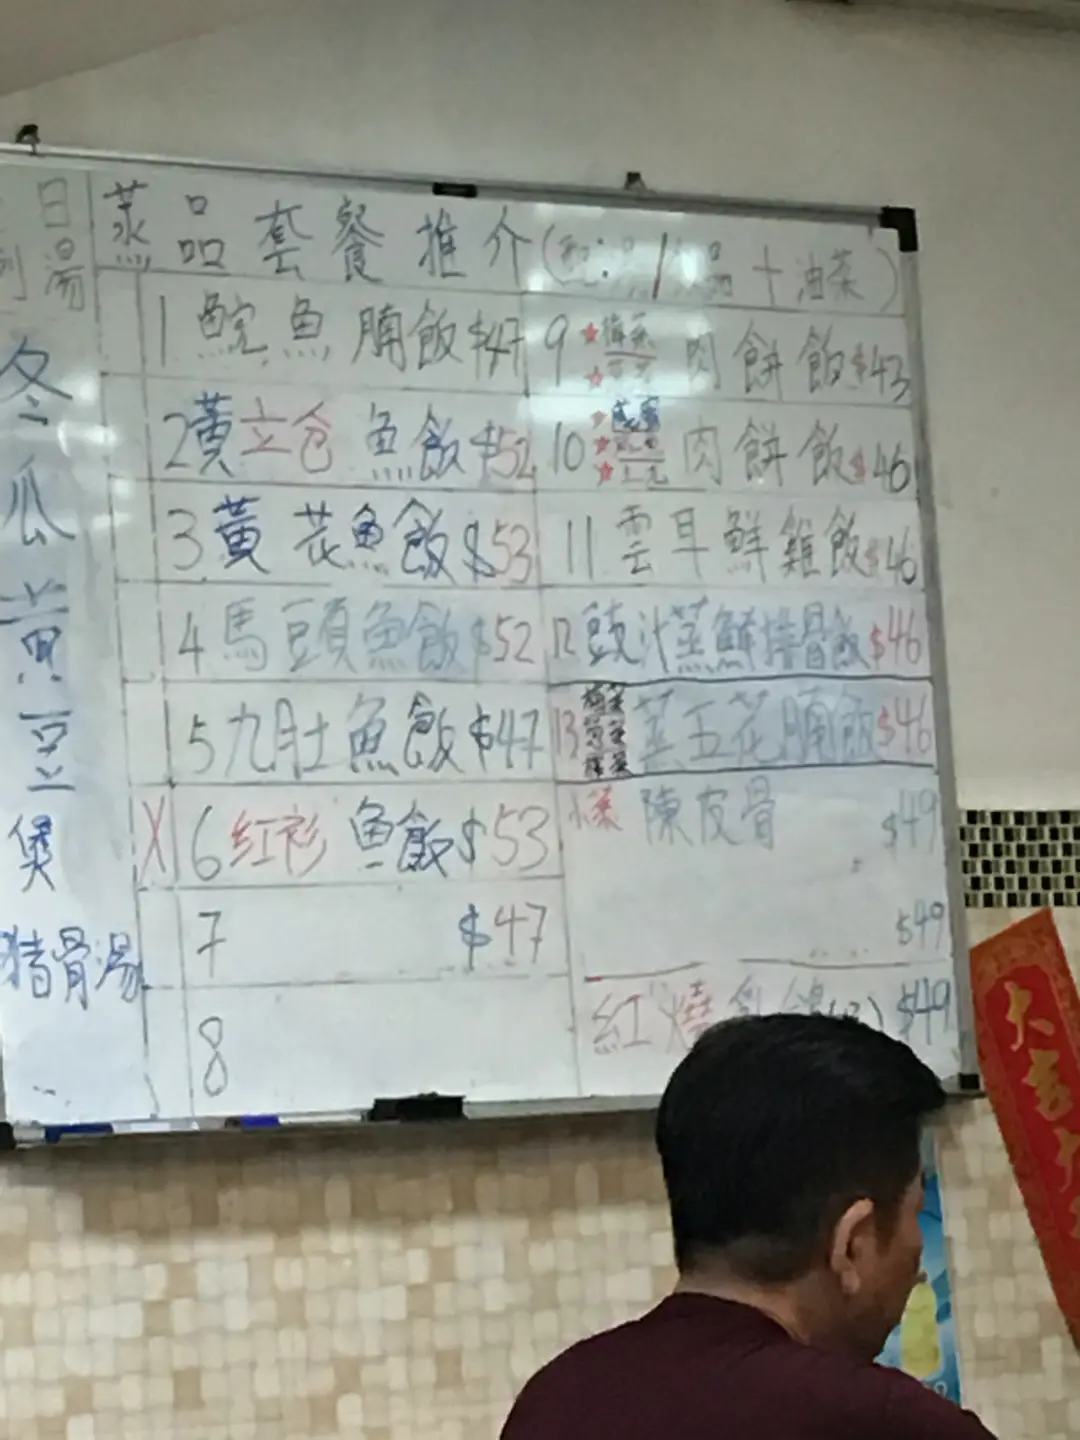 日
湯
冬
瓜
黃
豆
煲
豬骨湯
蒸品套餐推介(配: / 品+油菜)
1 鯇魚腩飯 $47
2 黃立仓魚飯 $52
3 黃花魚飯 $53
4 馬頭魚飯 $52
5 九肚魚飯 $47
X 6 红衫魚飯 $53
7 $47
8
9 梅菜 肉餅飯 $43
10 肉餅飯 $46
11 雲耳鮮雞飯 $46
12 豉汁蒸鮮排骨飯 $46
13 蒸五花腩飯 $46
小菜 陳皮骨 $49
$49
紅燒乳鴿 $49
大吉大